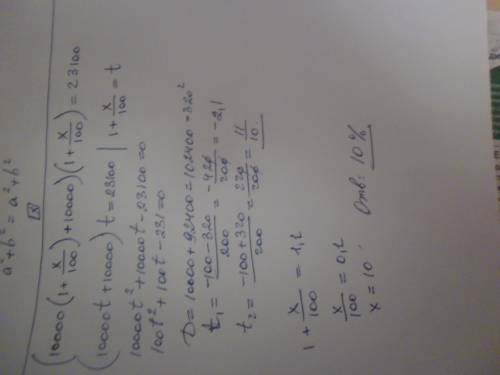 a²+b² = a²+b²
(10000(1+x/100)+10000)(1+x/100)=23100
(10000t+10000)t=23100 | 1+x/100=t
10000t²+10000t-23100=0
100t²+100t-231=0
D=10000+92400=102400=320²
t₁=(-100-320)/200=-420/200=-2,1
t₂=(-100+320)/200=220/200=11/10
1+x/100=1,1
x/100=0,1
x=10. Отв: 10%